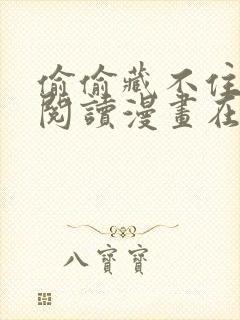 偷偷藏不住
閱讀漫畫在
八寶寶